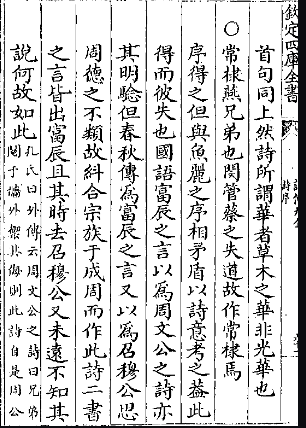 欽定四庫全書
首句同上然詩所謂華者草木之華非光華也
○常棣燕兄弟也閔管蔡之失道故作常棣焉
序得之但與魚麗之序相矛盾以詩意考之葢此
得而彼失也國語富辰之言以為周文公之詩亦
其明驗但春秋傳為富辰之言又以為召穆公思
周德之不類故糾合宗族于成周而作此詩二書
之言皆出富辰且其時去召穆公又未遠不知其
說何故如此孔氏曰外傳云周文公之詩曰兄弟
鬩于牆外禦其侮則此詩自是周公